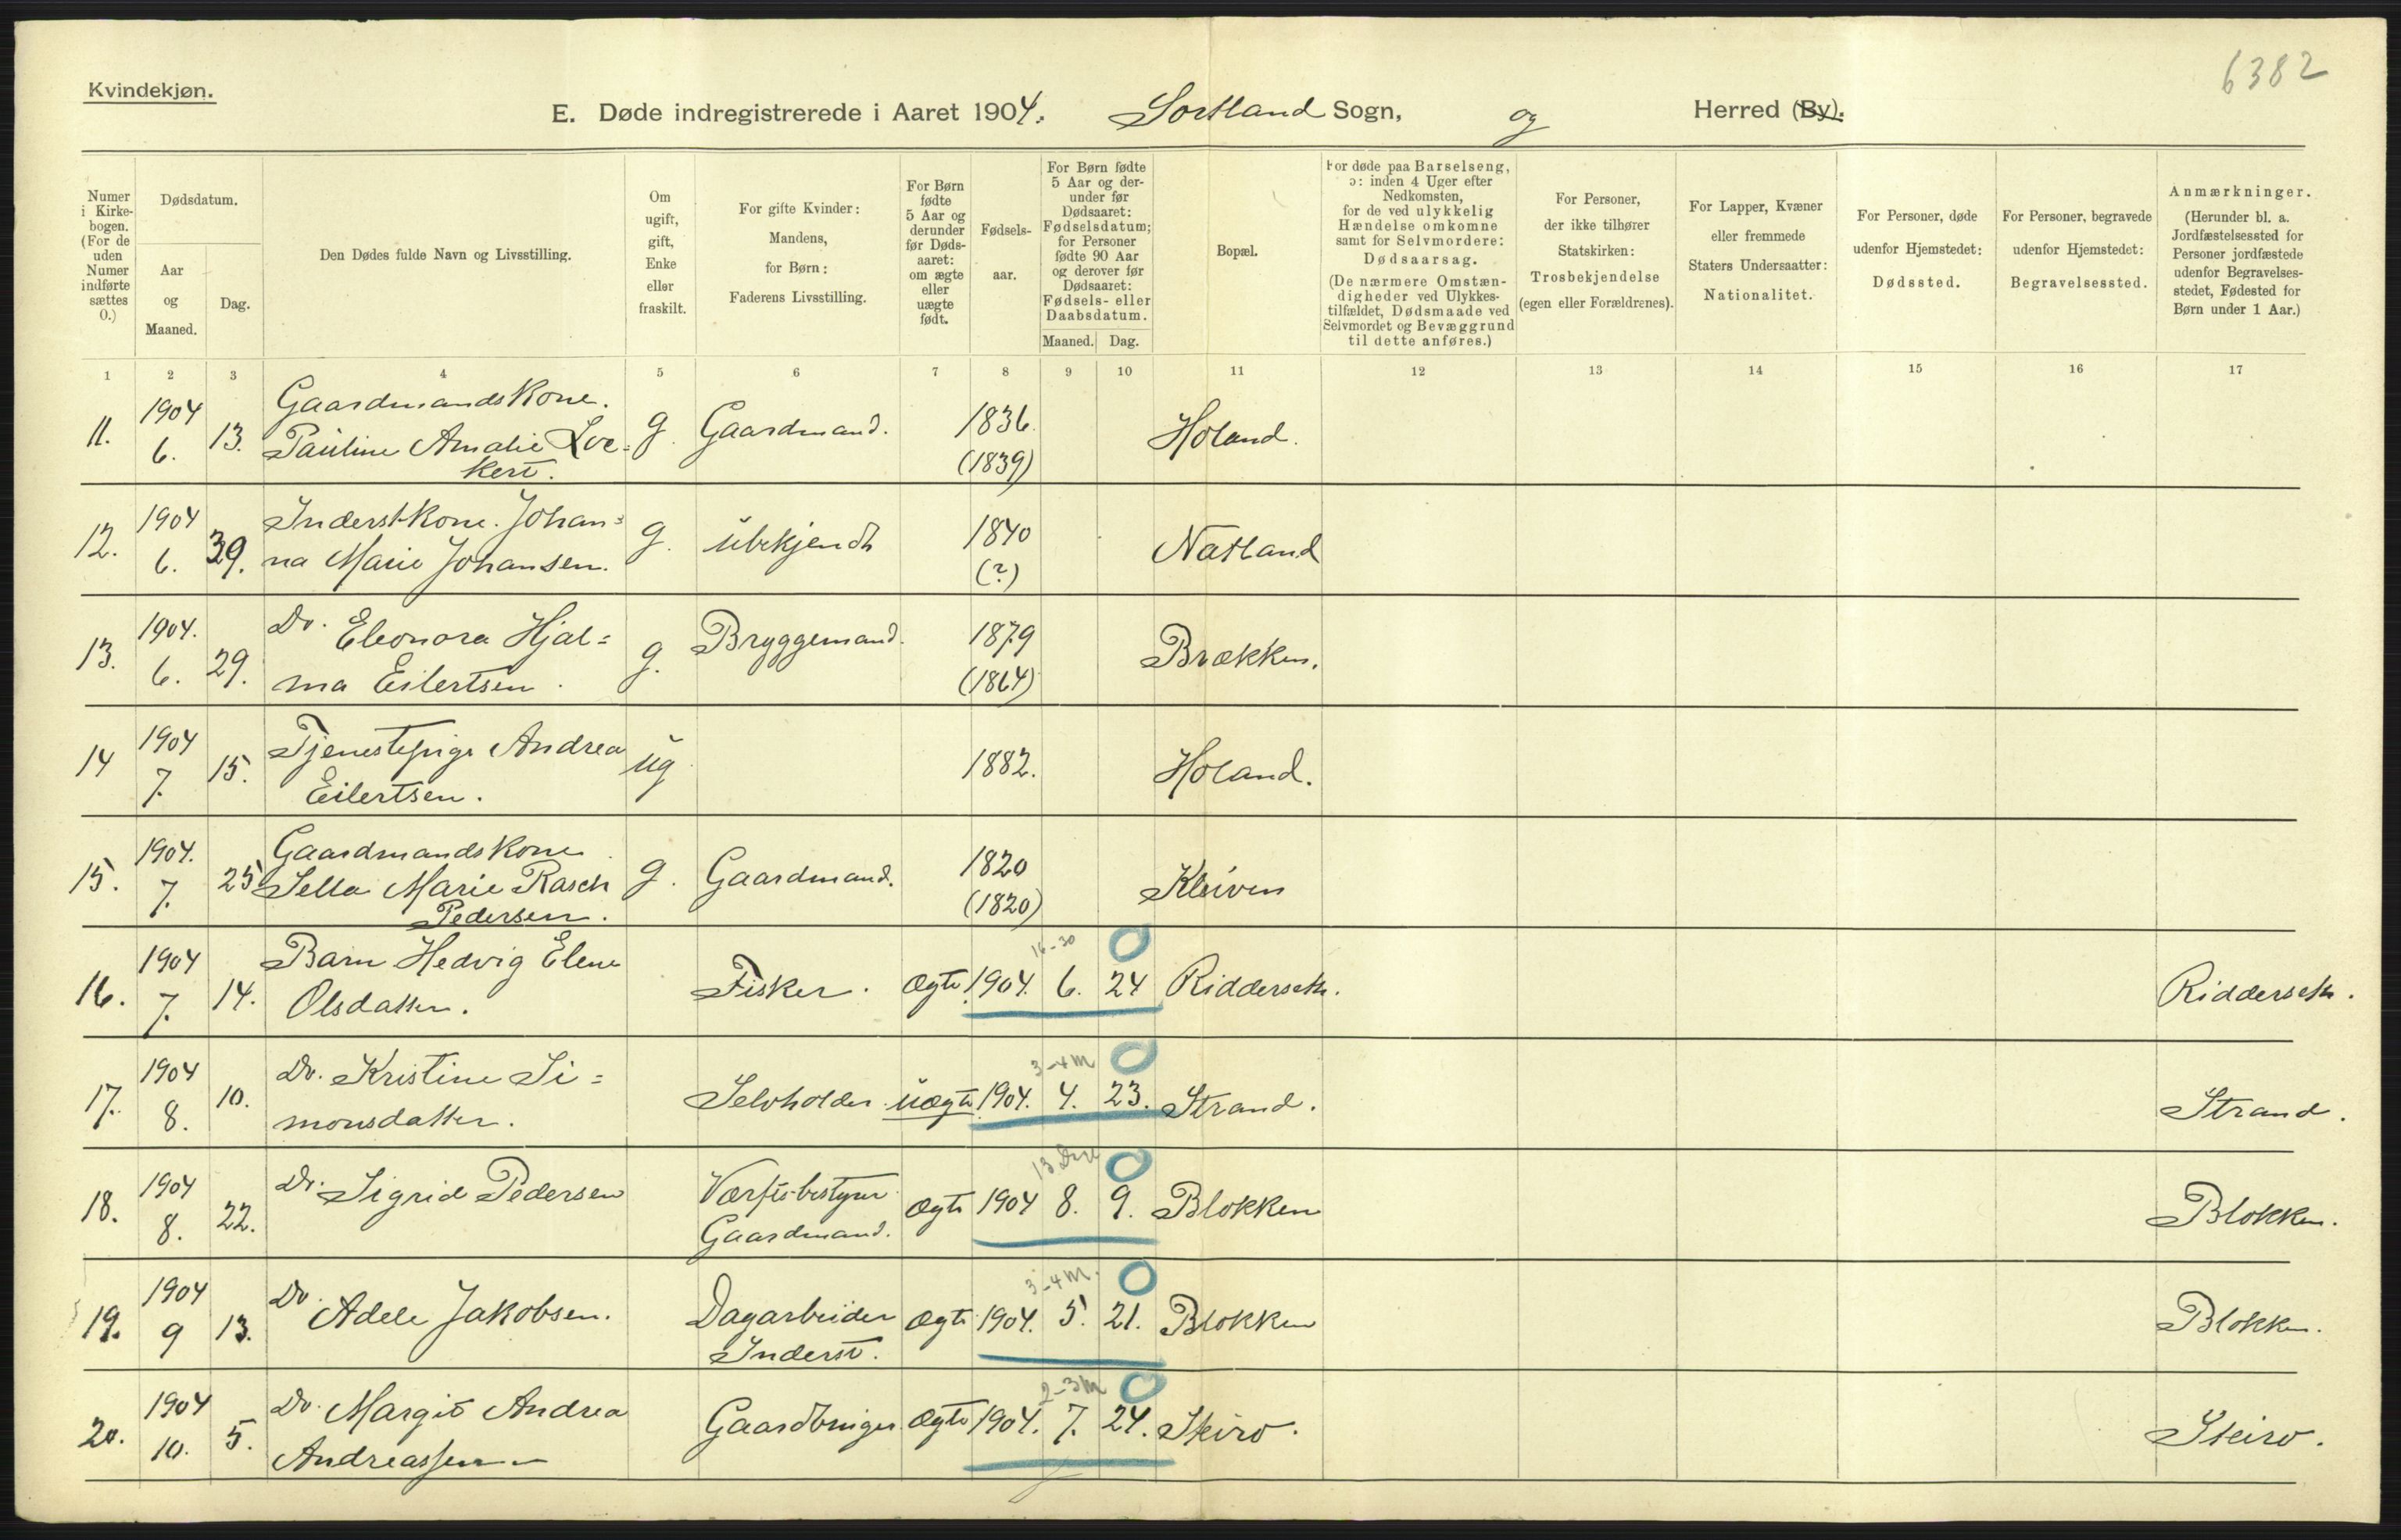 6382
Kvindekjøn.
E. Døde indregistrerede i Aaret 1904. Sortland Sogn, og Herred (By).
Numer i Kirkebogen. (For de uden Numer indførte sættes 0.)
Dødsdatum.
Aar og Maaned.
Dag.
Den Dødes fulde Navn og Livsstilling.
Om ugift, gift, Enke eller fraskilt.
For gifte Kvinder: Mandens, for Børn: Faderens Livsstilling.
For Børn fødte 5 Aar og derunder før Dødsaaret: om ægte eller uægte født.
Fødselsaar.
For Børn fødte 5 Aar og derunder før Dødsaaret: Fødselsdatum; for Personer fødte 90 Aar og derover før Dødsaaret: Fødsels- eller Daabsdatum.
Maaned. Dag.
Bopæl.
For døde paa Barselseng, ɔ: inden 4 Uger efter Nedkomsten, for de ved ulykkelig Hændelse omkomne samt for Selvmordere: Dødsaarsag.
(De nærmere Omstændigheder ved Ulykkestilfældet, Dødsmaade ved Selvmordet og Bevæggrund til dette anføres.)
For Personer, der ikke tilhører Statskirken: Trosbekjendelse (egen eller Forældrenes).
For Lapper, Kvæner eller fremmede Staters Undersaatter: Nationalitet.
For Personer, døde udenfor Hjemstedet: Dødssted.
For Personer, begravede udenfor Hjemstedet: Begravelsessted.
Anmærkninger. (Herunder bl. a. Jordfæstelsessted for Personer jordfæstede udenfor Begravelsesstedet, Fødested for Børn under 1 Aar.)
1 2 3 4 5 6 7 8 9 10 11 12 13 14 15 16 17
11. 1904 6. 13. Gaardmandskone. Pauline Amalie Lockert. g. Gaardmand. 1836. (1839) Holand.
12. 1904 6. 29. Inderstkone. Johanna Marie Johansen. g. ubekjendt 1840 (?) Natland
13. 1904. 6. 29. Do. Eleonora Hjalma Eilertsen. g. Bryggemand. 1879 (1864) Brækken.
14 1904 7. 15. Tjenestepige Andrea Eilertsen. ug 1882. Holand.
15. 1904. 7. 25. Gaardmandskone Sella Marie Rasch Pedersen. g. Gaardmand. 1820 (1820) Kleiven
16. 1904 7. 14. Barn Hedvig Elene Olsdatter. Fisker. Ægte 1904. 6. 24 16-30 Ridderseth. Ridderseth.
17. 1904 8. 10. Do. Kristine Simonsdatter. Selvholder uægte 1904. 4. 23. 3-4 M Strand. Strand.
18. 1904 8. 22. Do. Sigrid Pedersen Værftsbestyrer Gaardmand. Ægte 1904 8. 9. Blokken Blokken.
19. 1904 9 13. Do. Adele Jakobsen. Dagarbeider Inderst. Ægte 1904. 5. 21. 3-4 M. Blokken Blokken.
20. 1904 10. 5. Do. Margit Andrea Andreassen Gaardbruger Ægte 1904. 7. 24. 2-3 M Steiro. Steiro.